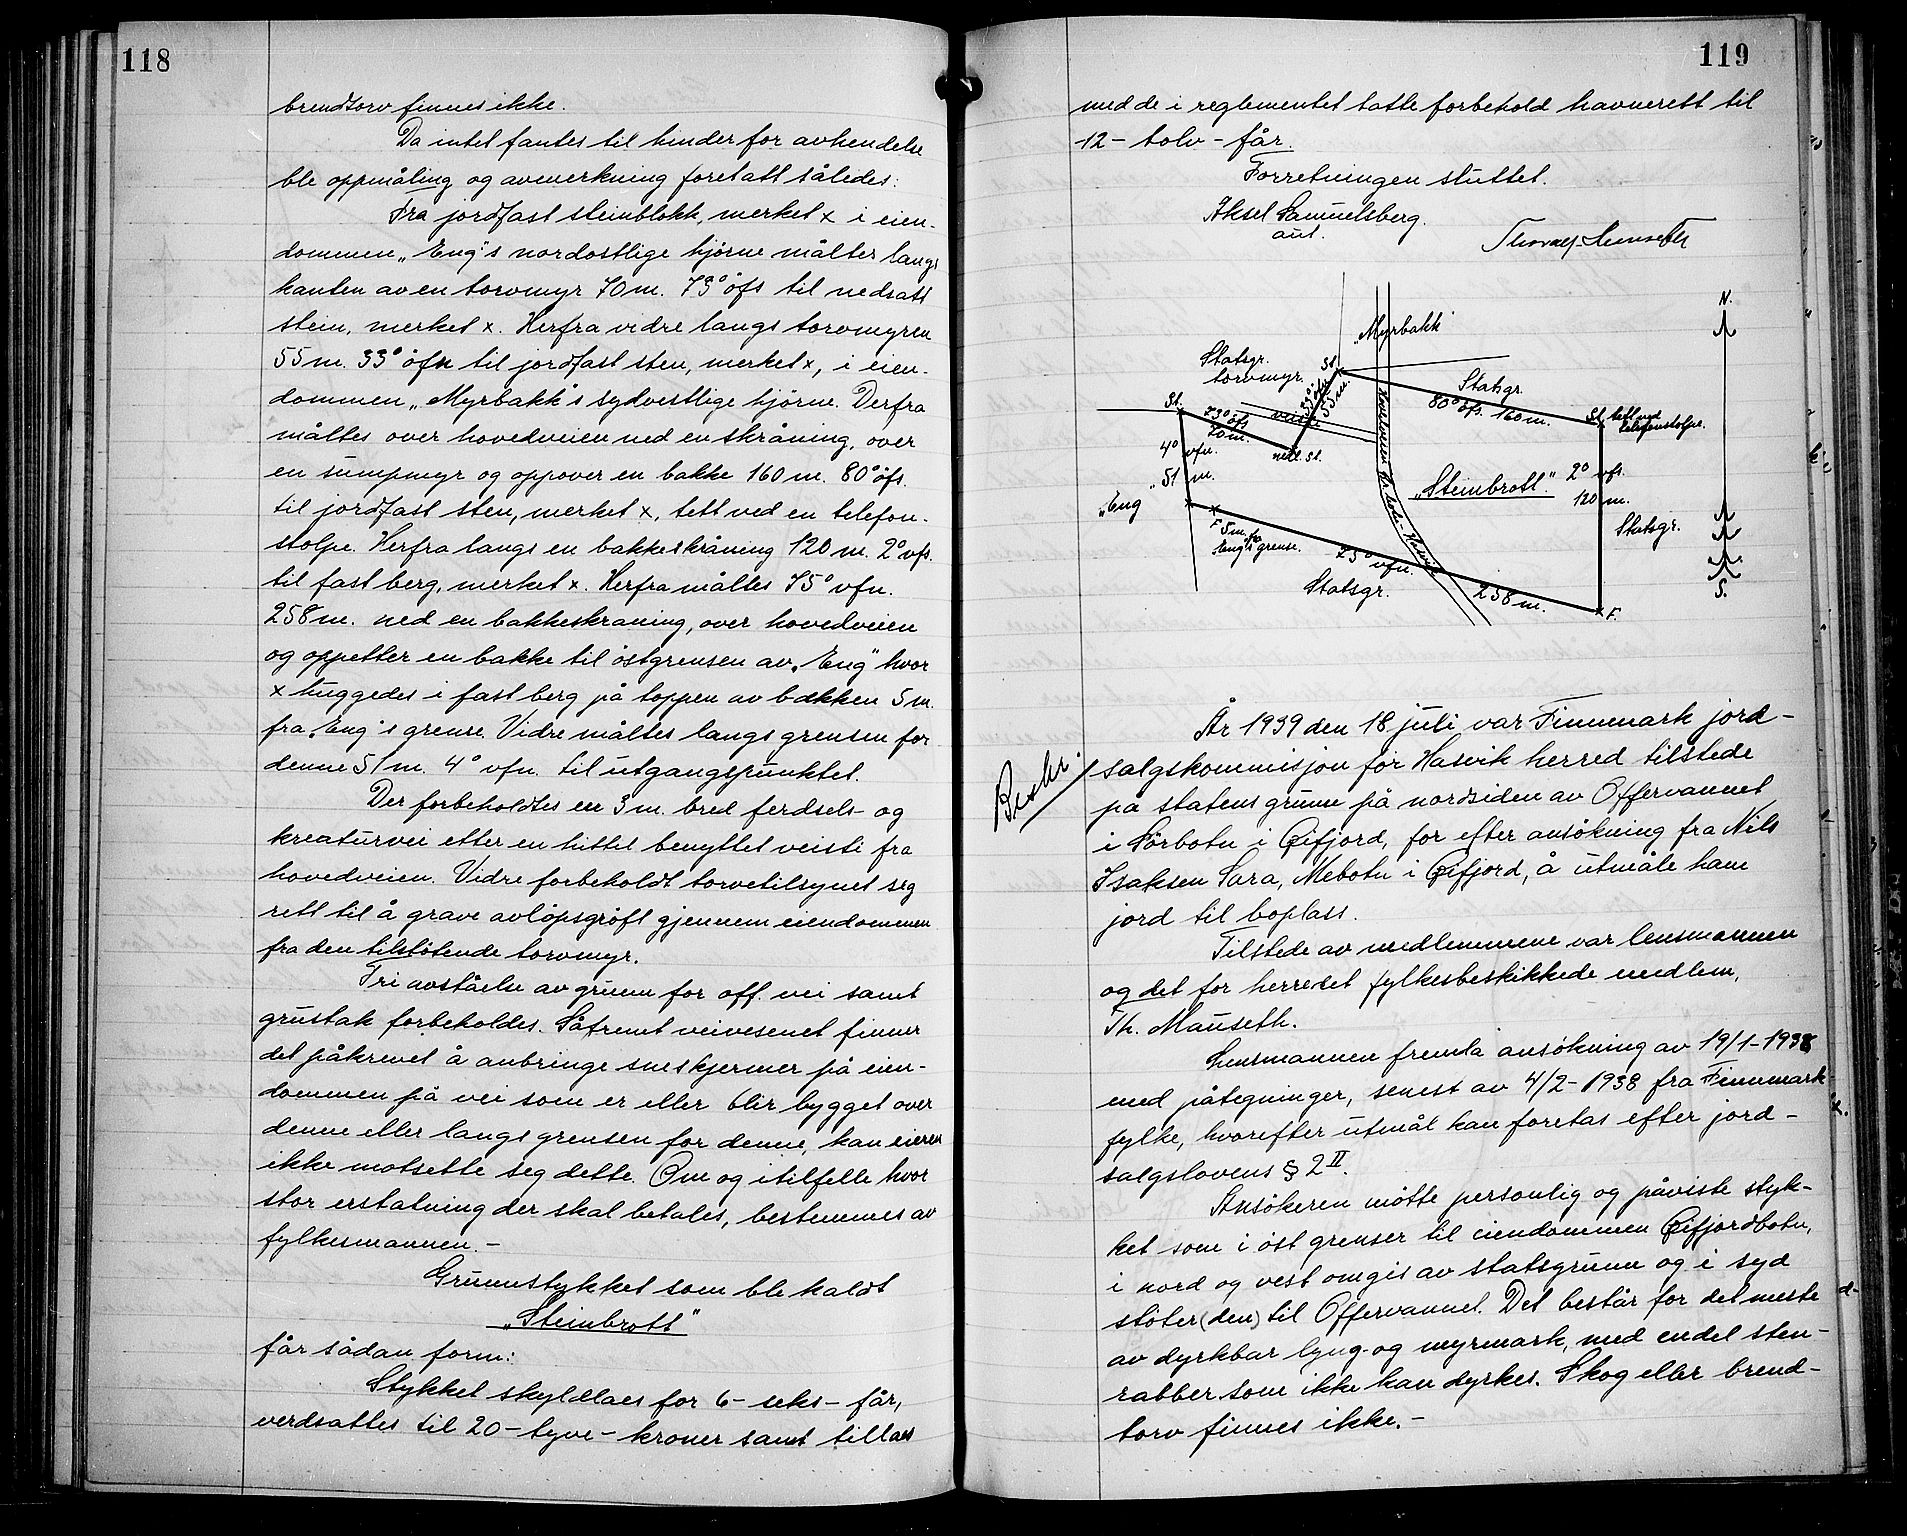 118
brendtorv finnes ikke.
Da intet fantes til hinder for avhendelse
ble oppmåling og avmerkning foretatt således:
Fra jordfast steinblokk, merket x i eien-
dommen „Eng"s nordostlige hjørne måltes langs
kanten av en torvmyr 70 m. 73° öfs til nedsatt
stein, merket x. Herfra vidre langs torvmyren
55 m. 33° öfn til jordfast sten, merket x, i eien-
dommen „Myrbakk"s sydvestlige hjörne. Derfra
måltes over hovedveien ned en skråning, over
en sumpmyr og oppover en bakke 160 m. 80° öfs.
til jordfast sten, merket x, tett ved en telefon-
stolpe. Herfra langs en bakkeskråning 120 m. 2° vfs.
til fast berg, merket x. Herfra måltes 75° vfn.
258 m. ned en bakkeskraning, over hovedveien
og oppetter en bakke til östgrensen av „Eng" hvor
x huggedes i fast berg på toppen av bakken 5 m.
fra „Eng"s grense. Vidre måltes langs grensen for
denne 51 m. 4° vfn. til utgangspunktet.
Der forbeholdtes en 3 m. bred ferdsels- og
kreaturvei etter en hittil benyttet veisti fra
hovedveien. Vidre forbeholdt torvetilsynet seg
rett til å grave avlöpsgröft gjennem eiendommen
fra den tilstötende torvmyr.
Fri avståelse av grunn for off. vei samt
grustak forbeholdes. Såfremt veivesenet finner
det påkrevet å anbringe sneskjermer på eien-
dommen på vei som er eller blir bygget over
denne eller langs grensen for denne, kan eieren
ikke motsette seg dette. Om og i tilfelle hvor
stor erstatning der skal betales, bestemmes av
fylkesmannen. –
Grunnstykket som ble kaldt
„Steinbrott"
får sådan form:
Stykket skyldlaes for 6 – seks – får,
verdsattes til 20 – tyve – kroner samt tillaes
119
med de i reglementet tatte forbehold havnerett til
12 – tolv – får.
Forretningen sluttet.
Aksel Samuelsberg.
aut.
N.
„Myrbakk"
Statsgr.
torvmyr.
St.
33° öfn
55 m.
Statsgr.
80° öfs. 160 m.
St. tett ved
telefonstolpe.
St.
73° öfs
70 m.
veisti
ned. St.
4° vfn.
51 m.
„Eng"
„Steinbrott."
2° vfs.
120 m.
Statsgr.
F. 5 m. fra
Eng's grense.
75° vfn.
258 m.
Statsgr.
F.
S.
År 1939 den 18 juli var Finnmark jord-
salgskommisjon for Hasvik herred tilstede
på statens grunn på nordsiden av Offervannet
i Sörbotn i Öifjord, for efter ansökning fra Nils
Isaksen Sara, Mebotn i Öifjord, å utmåle ham
jord til boplass.
Tilstede av medlemmene var lensmannen
og det for herredet fylkesbeskikkede medlem,
Th. Mauseth.
Lensmannen fremla ansökning av 19/1-1938
med påtegninger, senest av 4/2-1938 fra Finnmark
fylke, hvorefter utmål kan foretas efter jord-
salgslovens § 2 II.
Ansökeren mötte personlig og påviste styk-
ket som i öst grenser til eiendommen Öifjordbotn,
i nord og vest omgis av statsgrunn og i syd
stöter (den) til Offervannet. Det består for det meste
av dyrkbar lyng- og myrmark, med endel sten-
rabber som ikke kan dyrkes. Skog eller brend-
torv finnes ikke. –